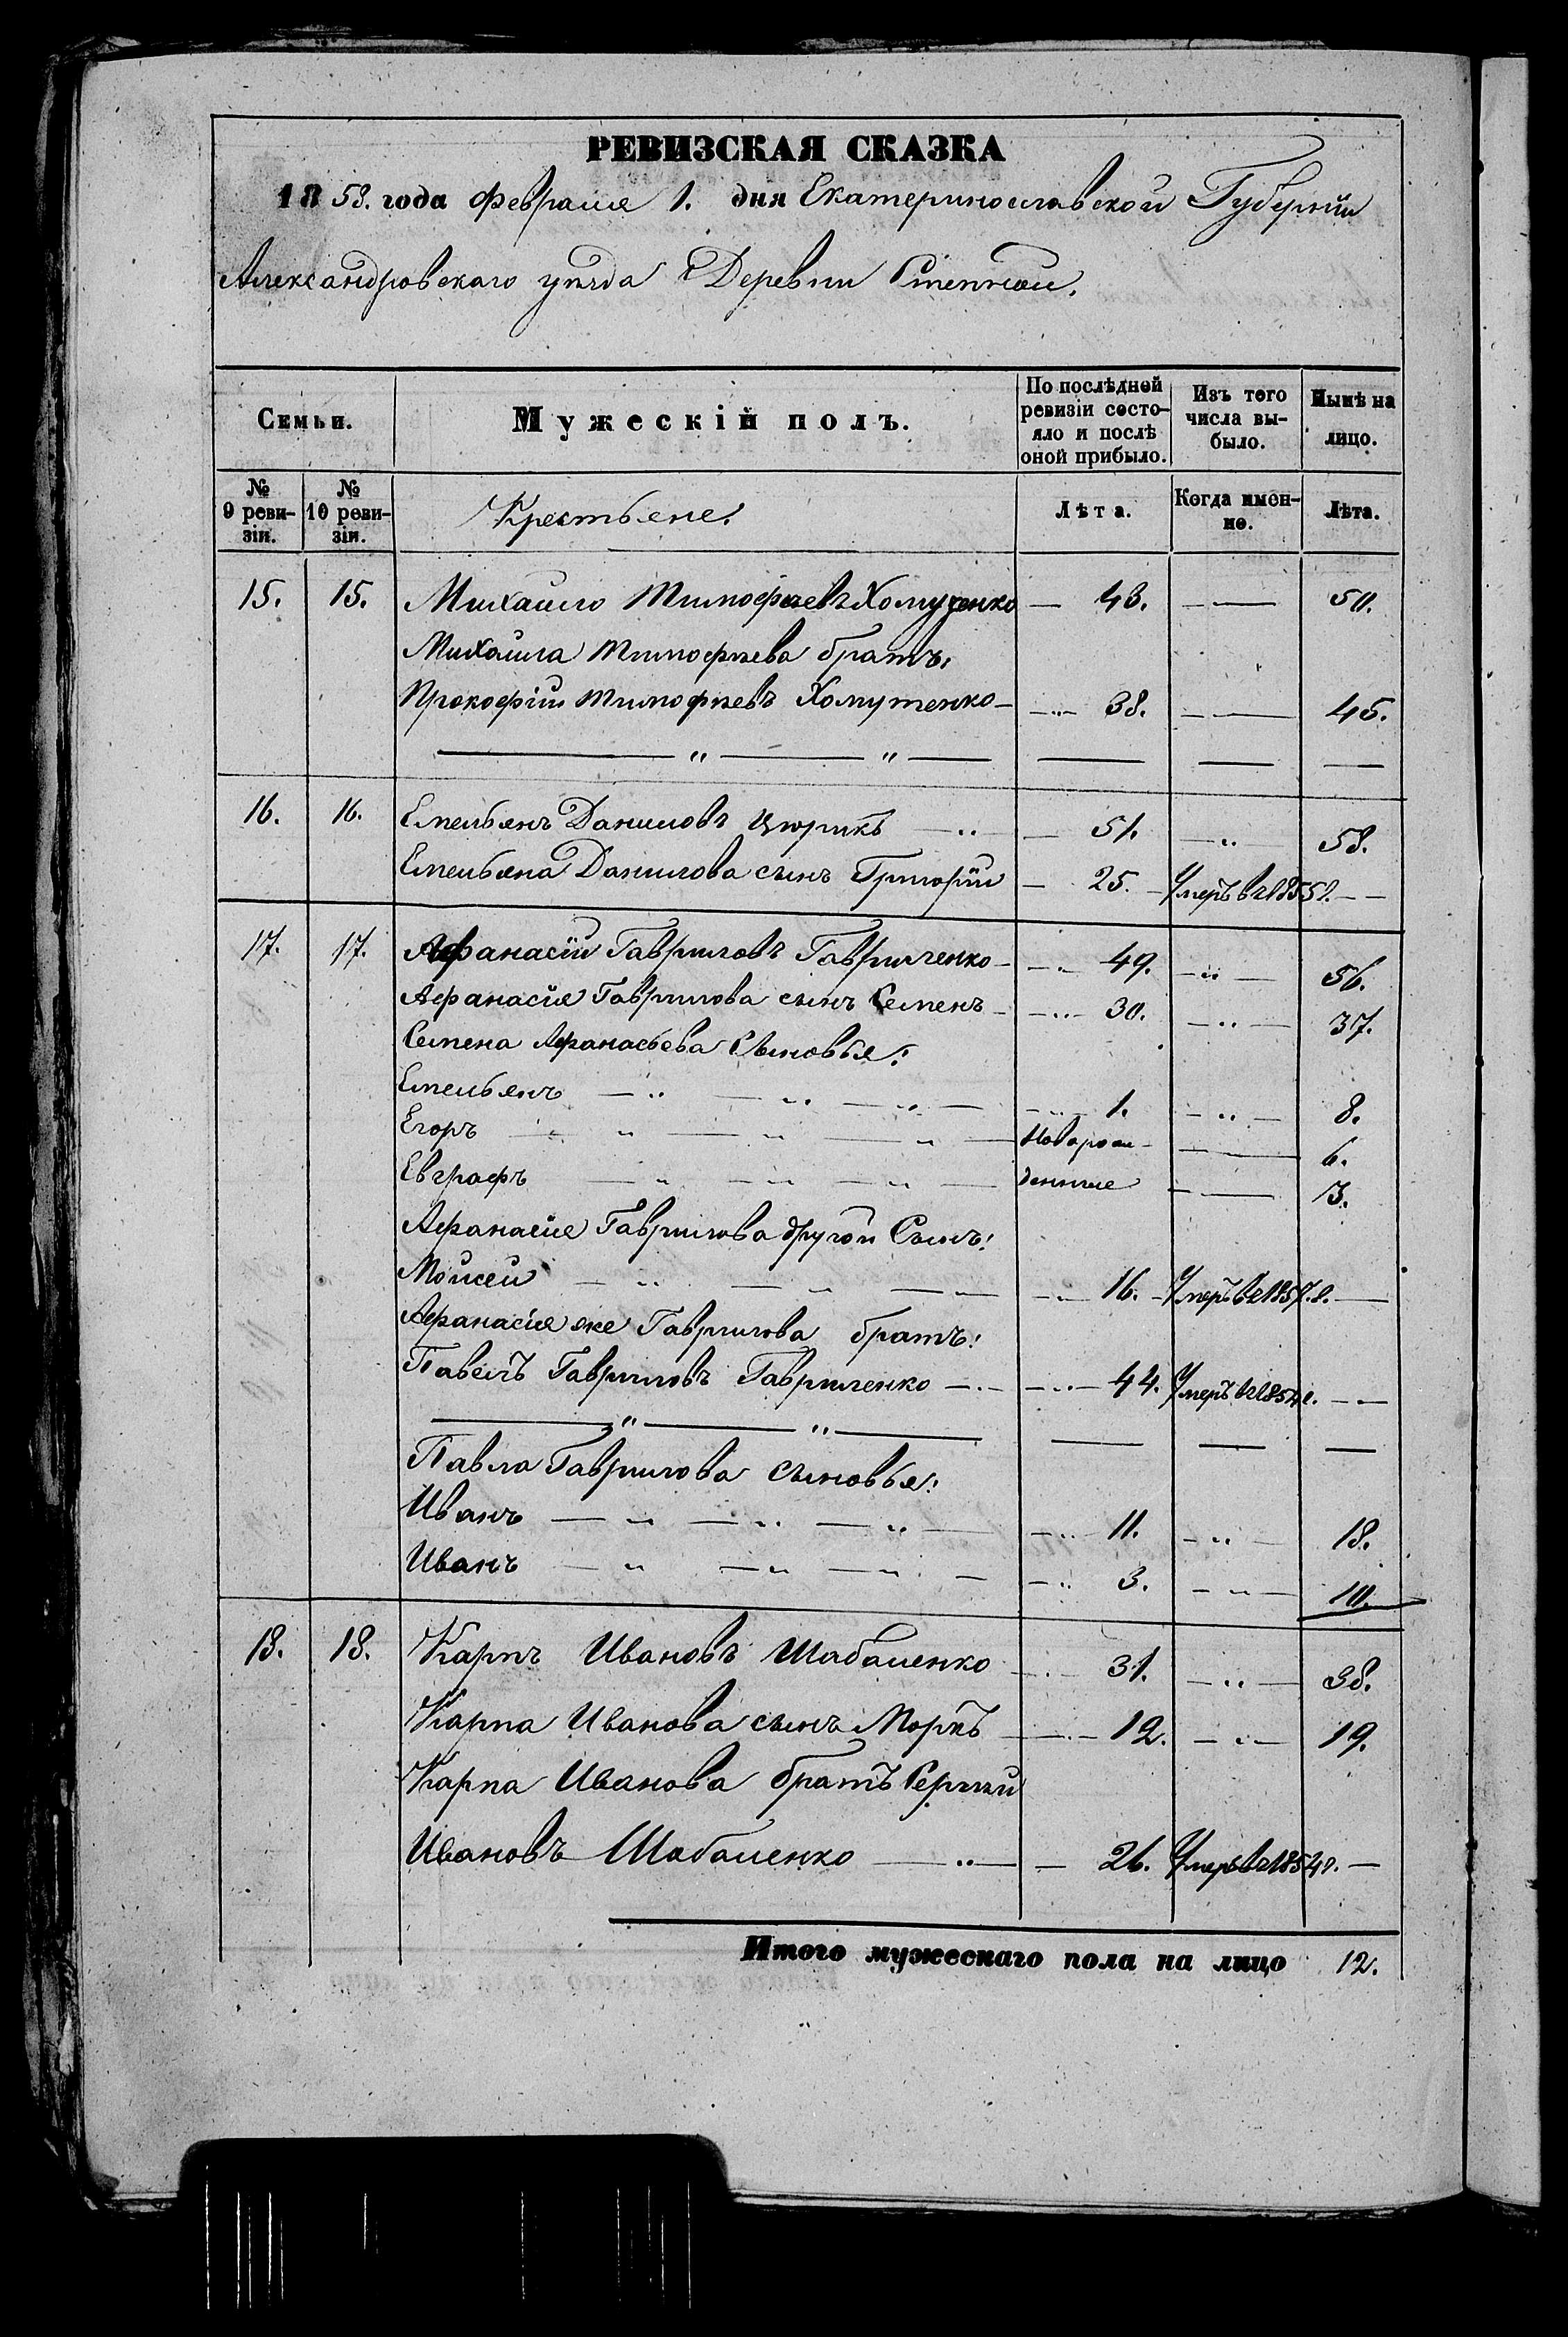 РЕВИЗСКАЯ СКАЗКА
1858. года февраля 1. дня Екатеринославской Губернiи
Александровскаго уѣзда Деревни Степной.
Семьи.
Мужескiй полъ.
По послѣдней ревизiи состояло и послѣ оной прибыло.
Изъ того числа выбыло.
Нынѣ на лицо.
№ 9 ревизiи.
№ 10 ревизiи.
Крестьяне.
Лѣта.
Когда именно.
Лѣта.
15. 15. Михайло Тимофѣевъ Хомутенко — 43. — — 50.
Михайла Тимофѣева братъ:
Прокофiй Тимофѣевъ Хомутенко — — 38. — — 45.
16. 16. Емельянъ Даниловъ Цюрикъ — 51. — 58.
Емельяна Данилова сынъ Григорiй — 25. — Умеръ въ 1855 г. — —
17. 17. Афанасiй Гавриловъ Гавриленко — — 49. — 56.
Афанасiя Гаврилова сынъ Семенъ — — 30. — 37.
Семена Афанасьева Сыновья:
Емельянъ — 1. — 8.
Егоръ — Новорож- — 6.
Евграфъ — денные — 3.
Афанасiя Гаврилова другой Сынъ:
Мойсей — 16. — Умеръ въ 1857. г. —
Афанасiя же Гаврилова братъ:
Павелъ Гавриловъ Гавриленко — 44. Умеръ въ 1854 г. — —
Павла Гаврилова Сыновья:
Иванъ — 11. — 18.
Иванъ — 3. — 10.
18. 18. Карпъ Ивановъ Шабаленко — 31. — 38.
Карпа Иванова сынъ Маркъ — 12. — 19.
Карпа Иванова братъ Сергѣй
Ивановъ Шабаленко — 26. Умеръ въ 1854 г. —
Итого мужескаго пола на лицо 12.